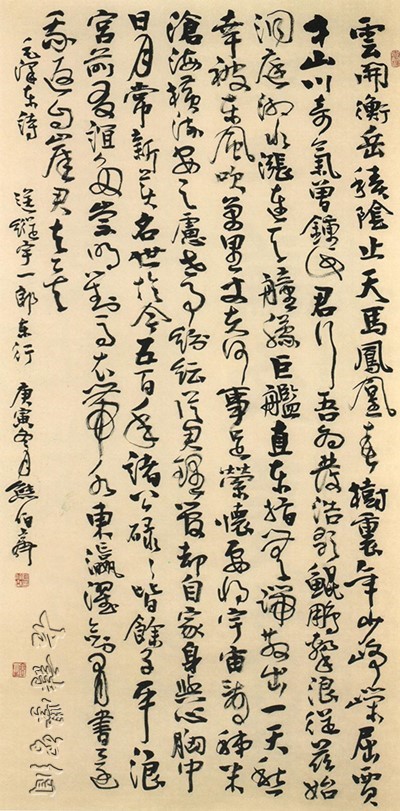 雲開衡岳積陰止天馬鳳凰春樹裏年少崢嶸屈賈
才山川奇氣曾鍾此君行吾為發浩歌鯤鵬擊浪從茲始
洞庭湘水漲連天艟艨巨艦直東指無端散出一天愁
幸被東風吹萬里丈夫何事足縈懷要將宇宙看稊米
滄海橫流安足慮世事紛紜從君理管却自家身與心胸中
日月常新美名世於今五百年諸公碌碌皆餘子平浪
宮前友誼多崇明對馬衣帶水東瀛濯劍有書還
我返自崖君去矣
毛澤東詩 送縱宇一郎東行 庚寅 月 熊伯齊